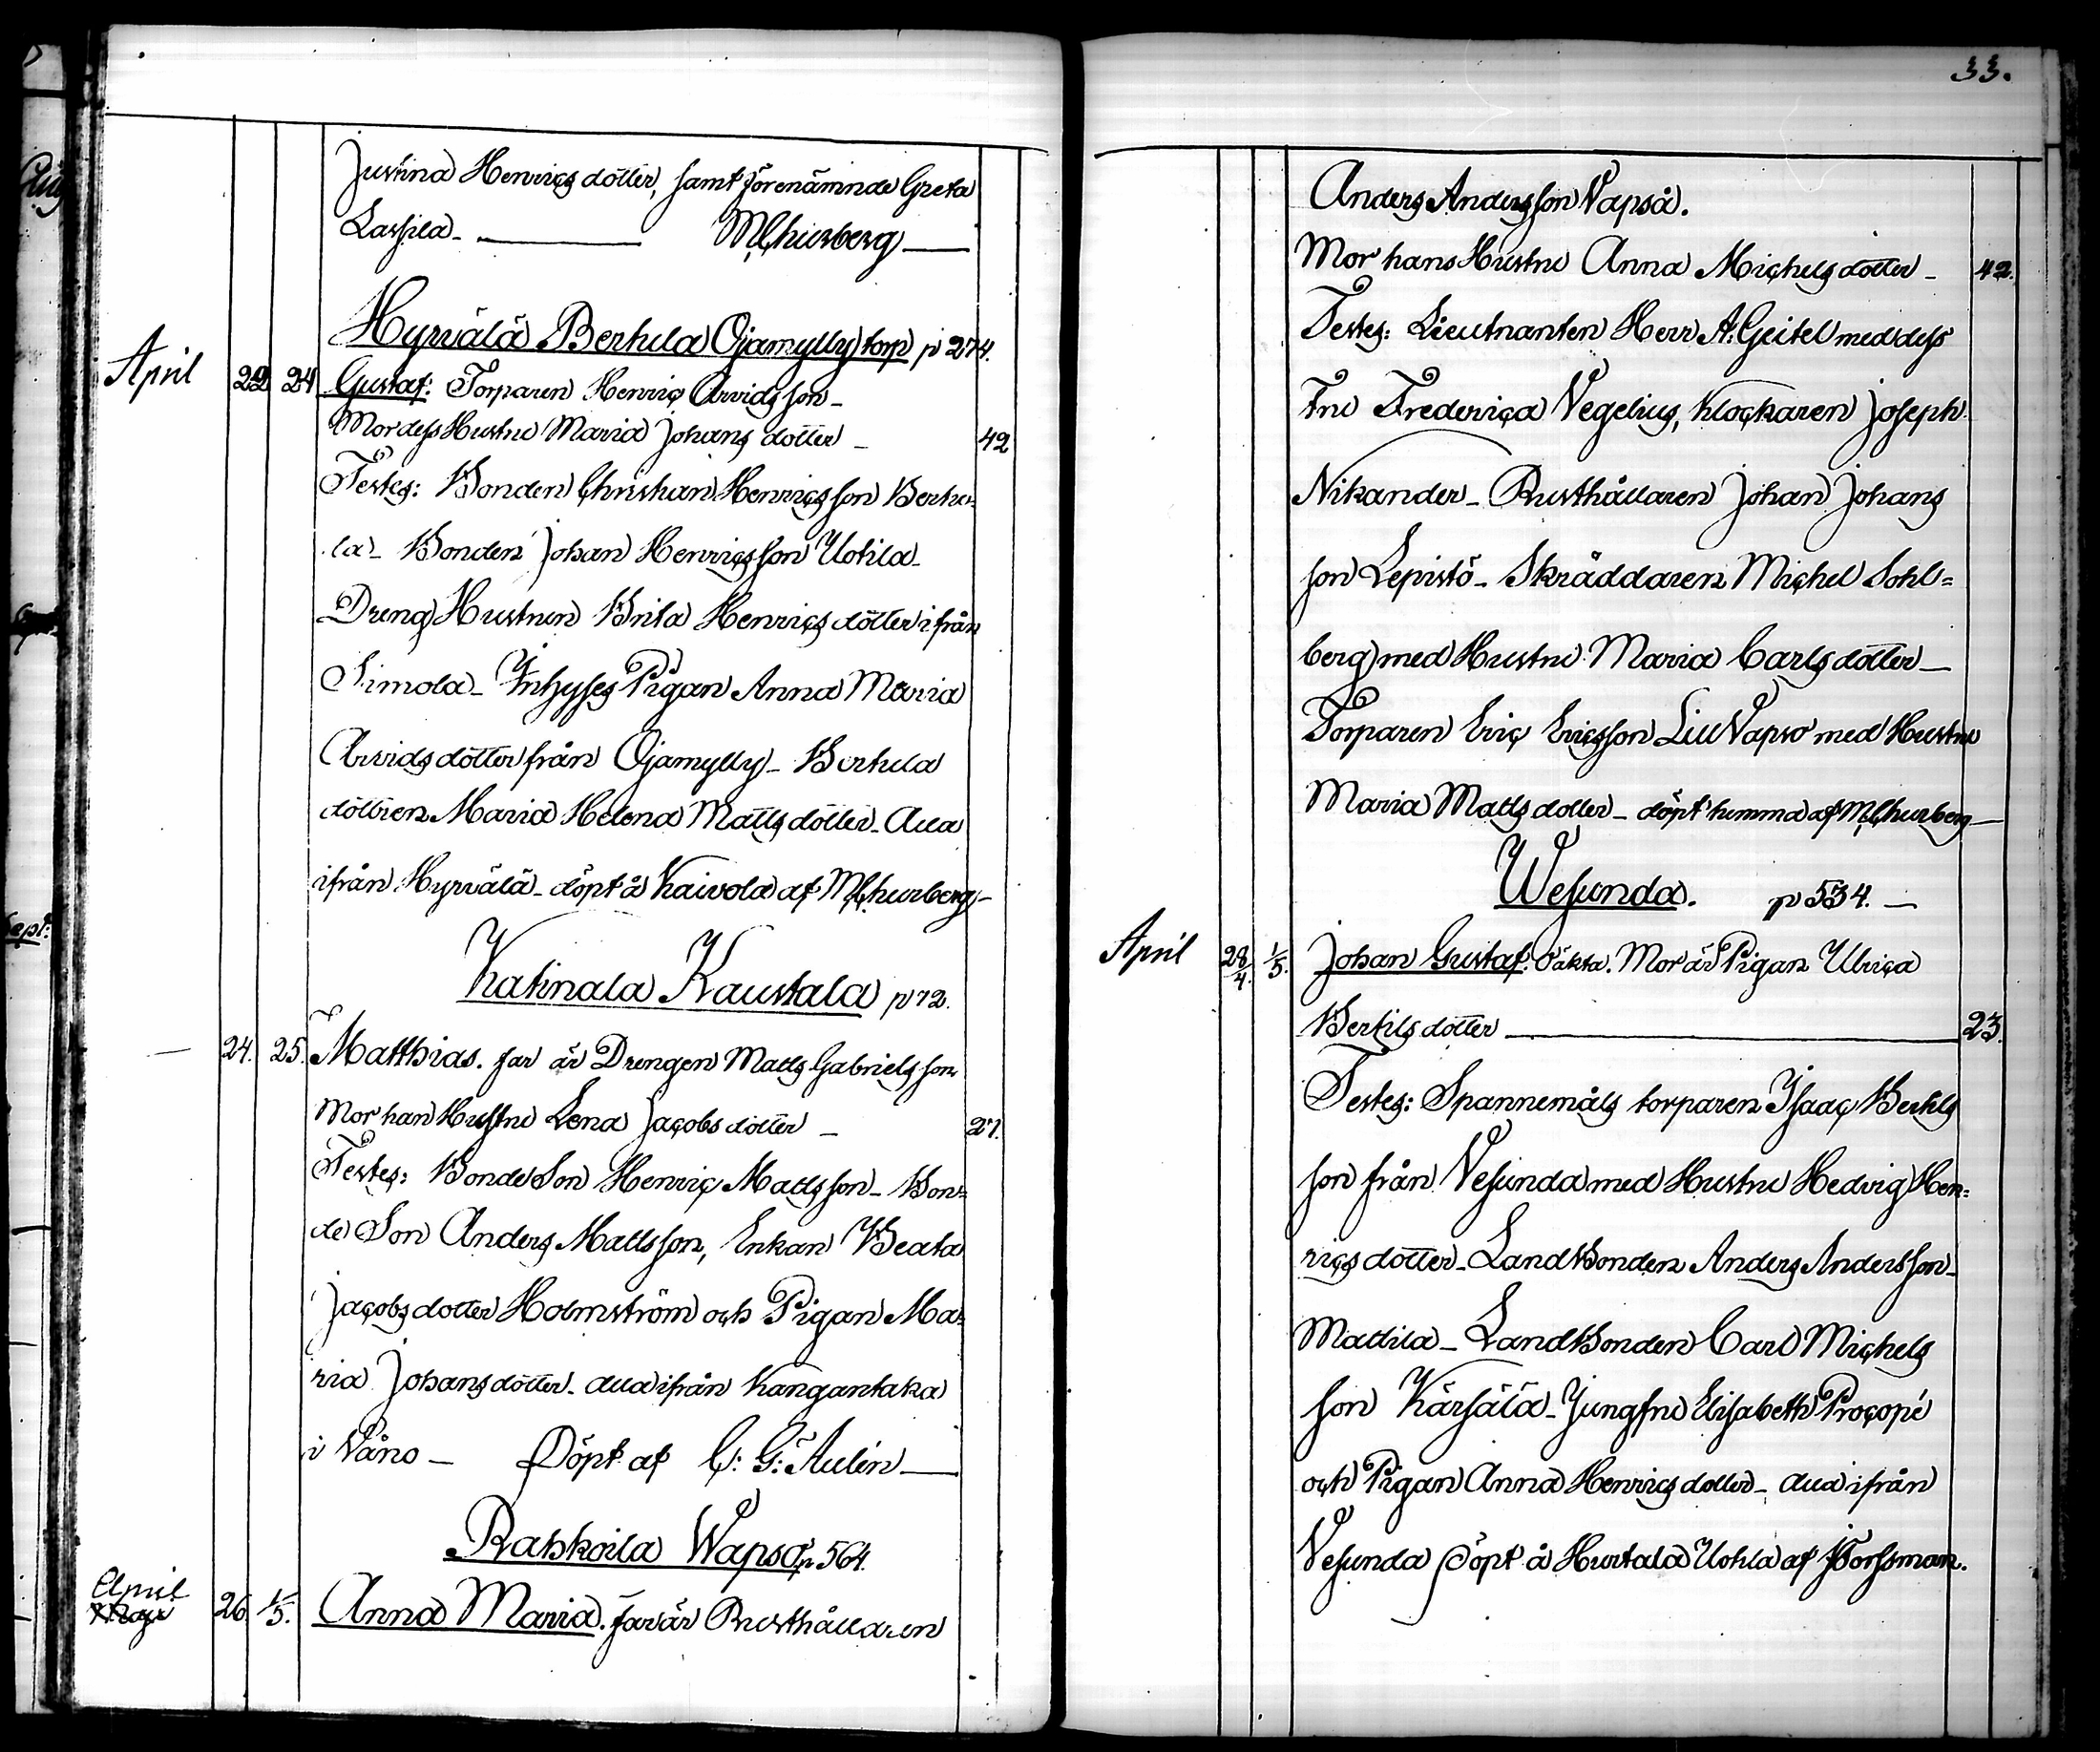 Justina Henricsdotter, samt förenämnde Greta
Lassila - M Churberg
Hyrvälä Berttula Ojamylly torp p 274.
April 22 24 Gustaf: Torparen Henric Arvidsson -
Mor dess Hustru Maria Johansdotter - 42
Testes: Bonden Christian Henricsson Berttu=
la - Bonden Johan Henricsson Uotila -
Dreng Hustrun Brita Henricsdotter ifrån
Simola - Inhyses Pigan Anna Maria
Arvidsdotter från Ojamylly - Berttula
dottren Maria Helena Mattsdotter - alla
ifrån Hyrvälä - döpt å Kaivola af M Churberg -
Katinala Kaustala p 72.
— 24. 25. Matthias. far är Drengen Matts Gabrielsson
Mor han Hustru Lena Jacobsdotter - 27.
Testes: Bonde Son Henric Mattsson - Bon=
de Son Anders Mattsson, Enkan Beata
Jacobsdotter Holmström och Pigan Ma=
ria Johansdotter - alla ifrån Kangantaka
i Våno - Döpt af C: G: Aulén
Rahkoila Wapso p 564.
April
Maji 26 1/5. Anna Maria. far är Rusthållaren
33.
Anders Andersson Vapså.
Mor hans Hustru Anna Michelsdotter - 42.
Testes: Lieutnanten Herr A: Geitel med dess
Fru Frederica Vegelius, Klockaren Joseph
Nikander - Rusthållaren Johan Johans
son Lepistö - Skräddaren Michel Sohl=
berg med Hustru Maria Carlsdotter -
Torparen Eric Ericsson Liu Vapso med Hustru
Maria Mattsdotter - döpt hemma af M Churberg -
Wesunda. p 534. -
April 28/4. 1/5. Johan Gustaf: Oäkta. Mor är Pigan Ulrica
Bertilsdotter 23.
Testes: Spannemåls torparen Isaac Bertils
son från Vesunda med Hustru Hedvig Hen=
ricsdotter - Landbonden Anders Andersson -
Mattila - Landbonden Carl Michels
son Kärsälä - Jungfru Elisabeth Procopé
och Pigan Anna Henricsdotter - alla ifrån
Vesunda Döpt å Hurtala Uotila af Forssman.